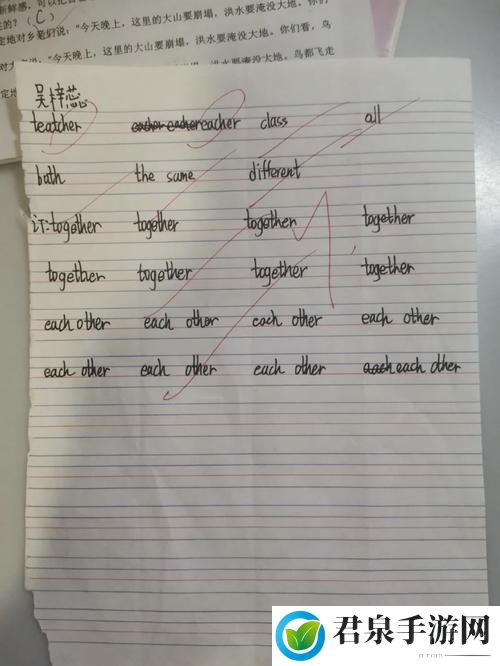 新鲜感，可以把自
的？（C）
定地对乡亲们说：“今天晚上，这里的大山要崩塌，洪水要淹没大地。你们
对大家说：“今天晚上，这里的大山要崩塌，洪水要淹没大地。你们看，鸟
洪水要淹没大地，鸟都飞走
吴梓蕊
teatcher eacher eacher eacher class all
bath the same different
订:together together together together
together together together together
each other each other each other each other
each other each other each other each each other
君泉手游网